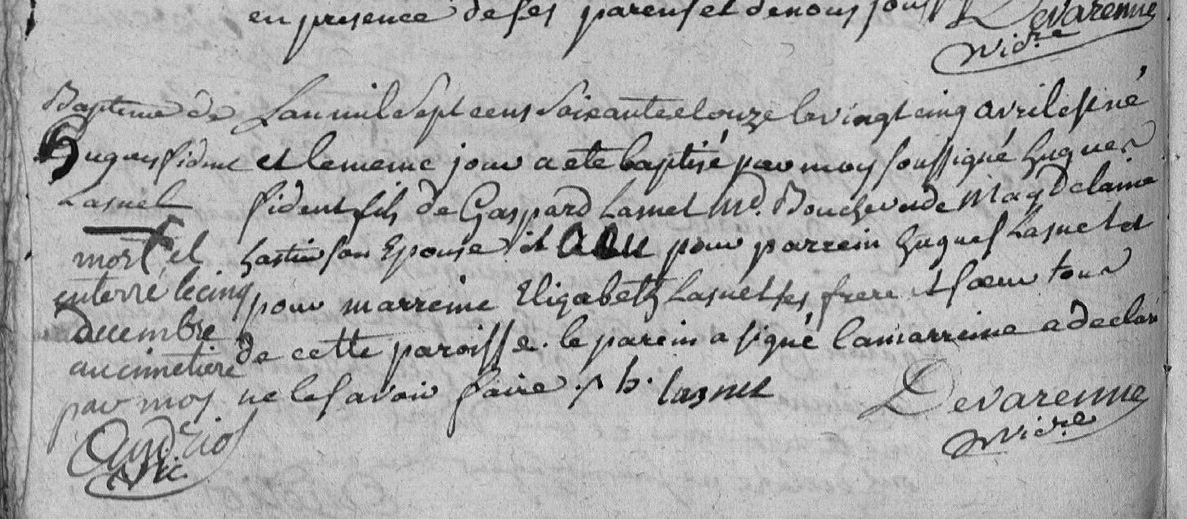 en presence de ses parens et de nous sous
Devarenne
vicre
Bapteme de
Hugues fident
Lasnet
mort et
enterré le cinq
decembre
au cimetiere
par moy
vic.
Lan mil Sept cens Soixante et onze le vingt cinq avril est né
et le meme jour a eté baptisé par moy soussigné hugues
fident fils de Gaspard Lasnet Md. Boucher et de Magdelaine
son Epouse et a eu pour parrein hugues Lasnet et
pour marreine Elizabeth Lasnet ses frere et soeur tous
de cette paroisse. le parein a signé la marreine a declaré
ne le savoir faire . h. lasnet
Devarenne
vicre